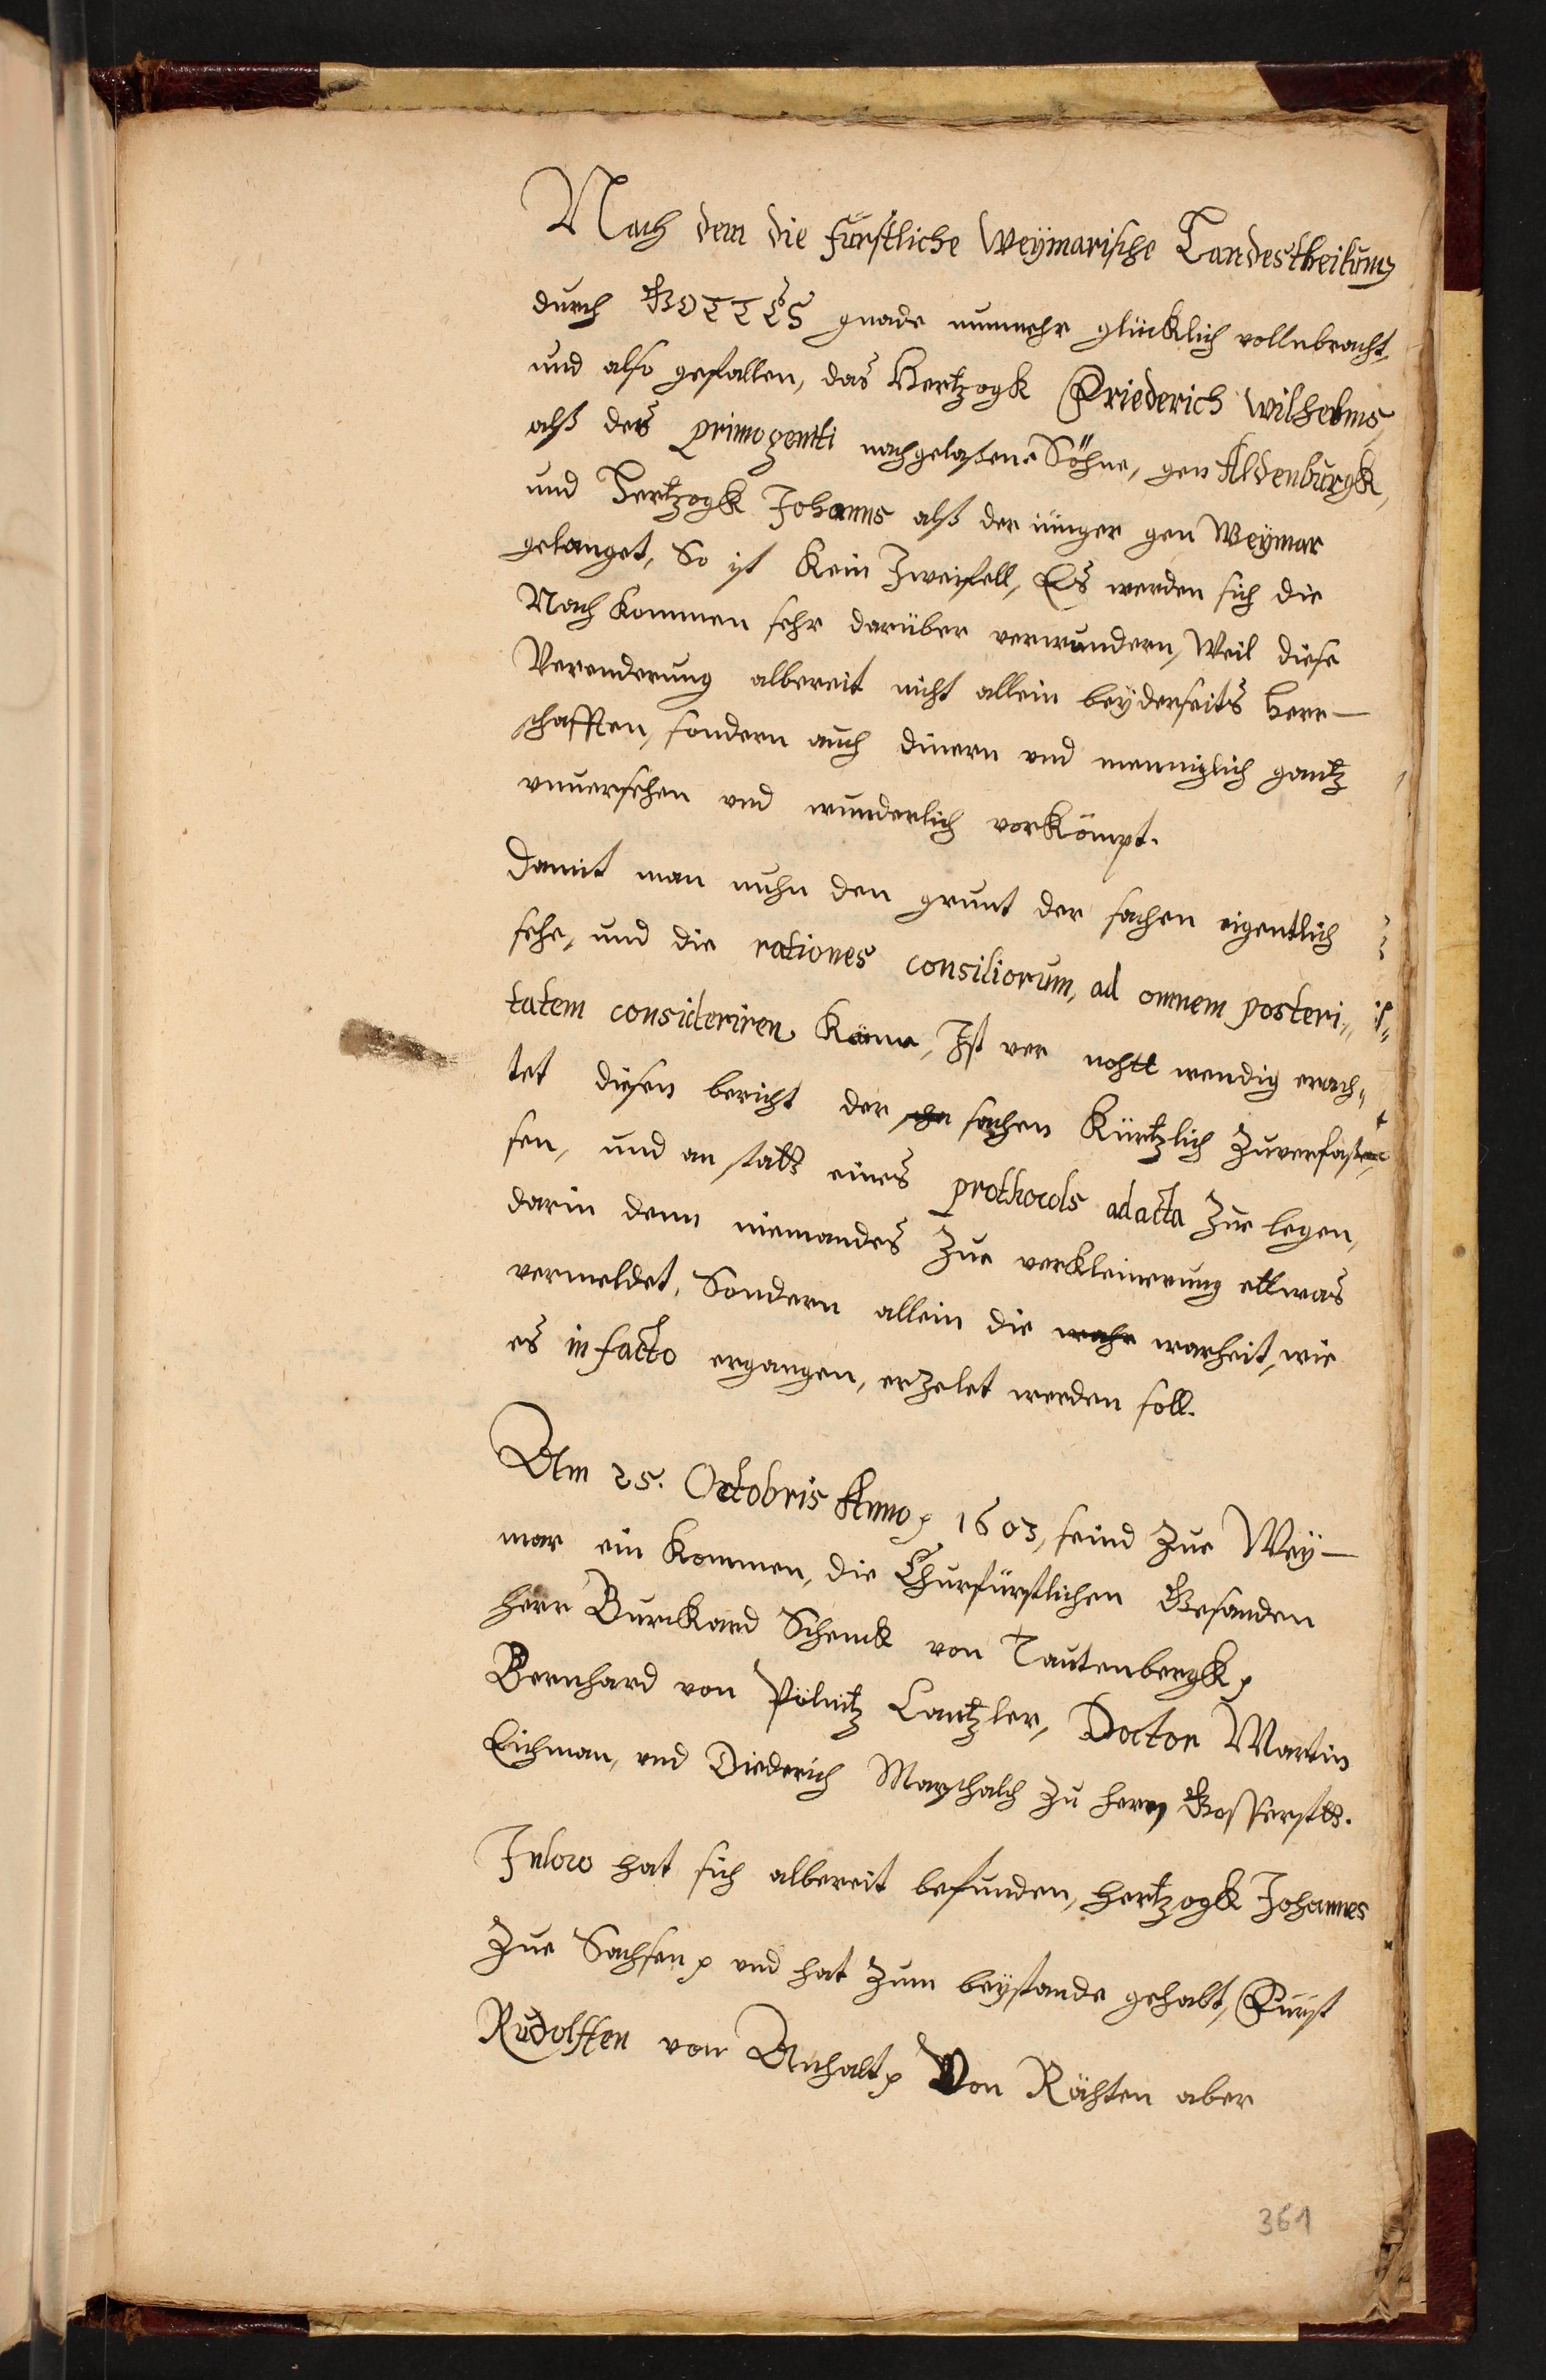 Nach dem die fürstliche Weÿmarische Landestheilung
durch GOTTES gnade nunmehr glücklich vollnbracht,
und also gefallen, das Hertzogk Friederich Wilhelms,
alß des primogeniti nachgelaßene Söhne, gen Aldenburgk,
und Hertzogk Johanns alß der jünger gen Weÿmar
gelanget, So ist kein Zweifell, Es werden sich die
Nach kommen sehr darüber verwundern, Weil diese
Verenderung albereit nicht allein beÿderseits Herr-
schafften, sondern auch dinern vnd menniglich gantz
vnuersehen vnd wunderlich vorkömpt.
Damit man nuhn den grunt der sachen eigentlich
sehe, und die rationes consiliorum, ad omnem posteri,,
tatem consideriren könne, Ist vor nohtt wendig erach,,
tet diesen bericht der sachen kürtzlich Zuverfas,,
sen, und an statt eines prothocols ad acta Zue legen,
darin denn niemandes Zue verkleinerung ettwas
vermeldet, Sondern allein die wahr warheit, wie
es in facto ergangen, erzelet werden soll.
Am 25. Octobris Anno 1603, seind Zue Weÿ-
mar ein kommen, die Churfürstlichen Gesanden
Herr Burckard Schenck von Tautenbergk,
Bernhard von Pölnitz Cantzler, Doctor Martin
Eichman, vnd Diederich Marschalch zu Herrn Gosserstt.
In loco hat sich albereit befunden, Hertzogk Johannes
Zue Sachsen vnd hat Zum beÿstande gehabt, Fürst
Rudolffen von Anhalt Von Rähten aber
361